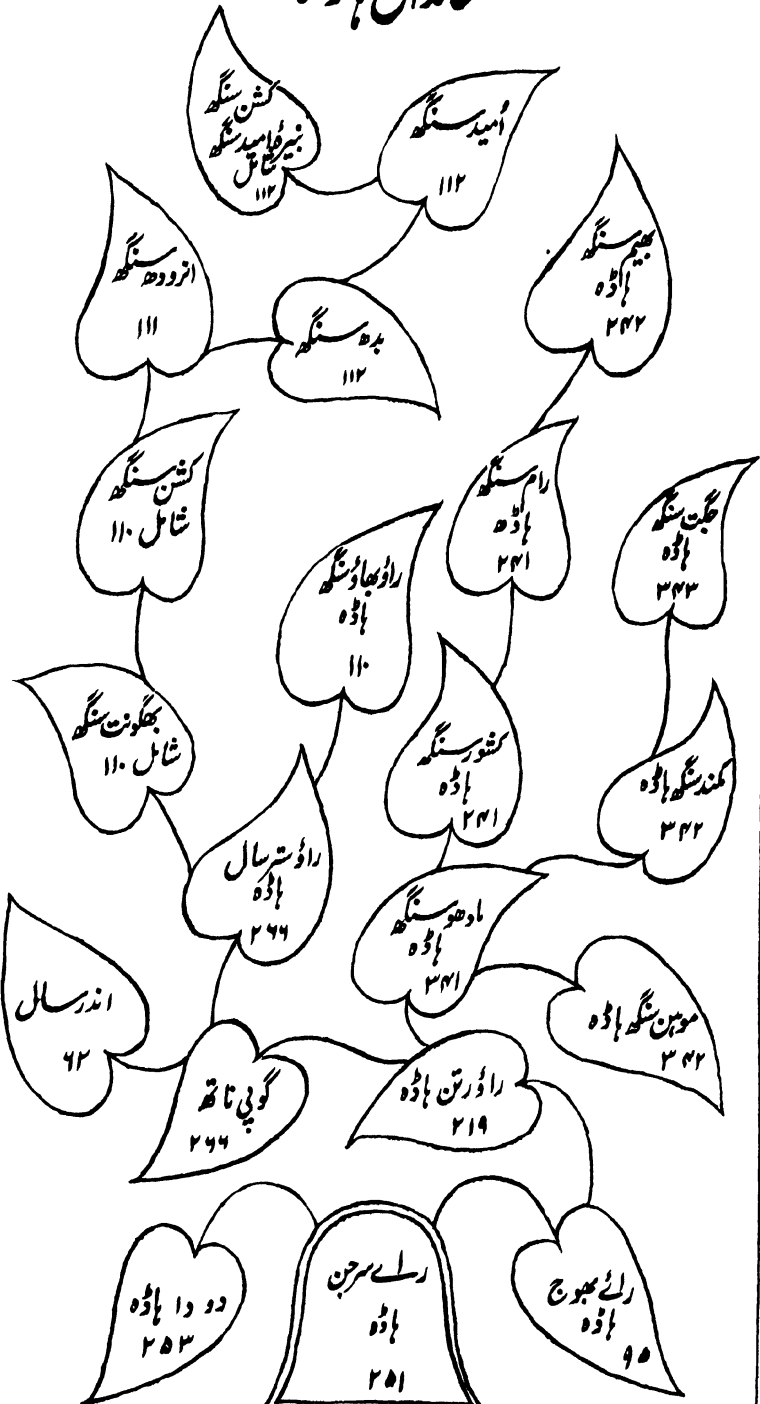 کشن سنگھ
نبیرۂ امید سنگھ
شامل
۱۱۲
اُمید سنگھ
۱۱۲
بھیم سنگھ
ہاڈہ
۲۴۲
انرودھ سنگھ
۱۱۱
بدھ سنگھ
۱۱۲
کشن سنگھ
شامل ۱۱۰
رام سنگھ
ہاڈہ
۲۴۱
جگت سنگھ
ہاڈہ
۳۴۳
راؤ بھاؤ سنگھ
ہاڈہ
۱۱۰
بھگونت سنگھ
شامل ۱۱۰
کشور سنگھ
ہاڈہ
۲۴۱
مکند سنگھ ہاڈہ
۳۴۲
راؤ ستر سال
ہاڈہ
۲۶۶
مادھو سنگھ
ہاڈہ
۳۴۱
اندر سال
۶۲
موہن سنگھ ہاڈہ
۳۴۲
گوپی ناتھ
۲۶۶
راؤ رتن ہاڈہ
۲۱۹
دودا ہاڈہ
۲۵۳
راے سرجن
ہاڈہ
۲۵۱
رائے بھوج
ہاڈہ
۹۵